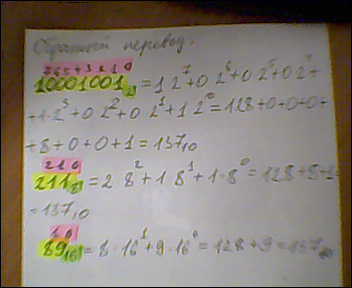 Обратный перевод.
7 6 5 4 3 2 1 0
10001001₂ = 1 2⁷ + 0 2⁶ + 0 2⁵ + 0 2⁴ +
+ 1·2³ + 0 2² + 0 2¹ + 1 2⁰ = 128 + 0 + 0 + 0 +
+ 8 + 0 + 0 + 1 = 137₁₀
2 1 0
211₈ = 2 8² + 1 8¹ + 1·8⁰ = 128 + 8 + 1
= 137₁₀
1 0
89₁₆ = 8·16¹ + 9·16⁰ = 128 + 9 = 137₁₀